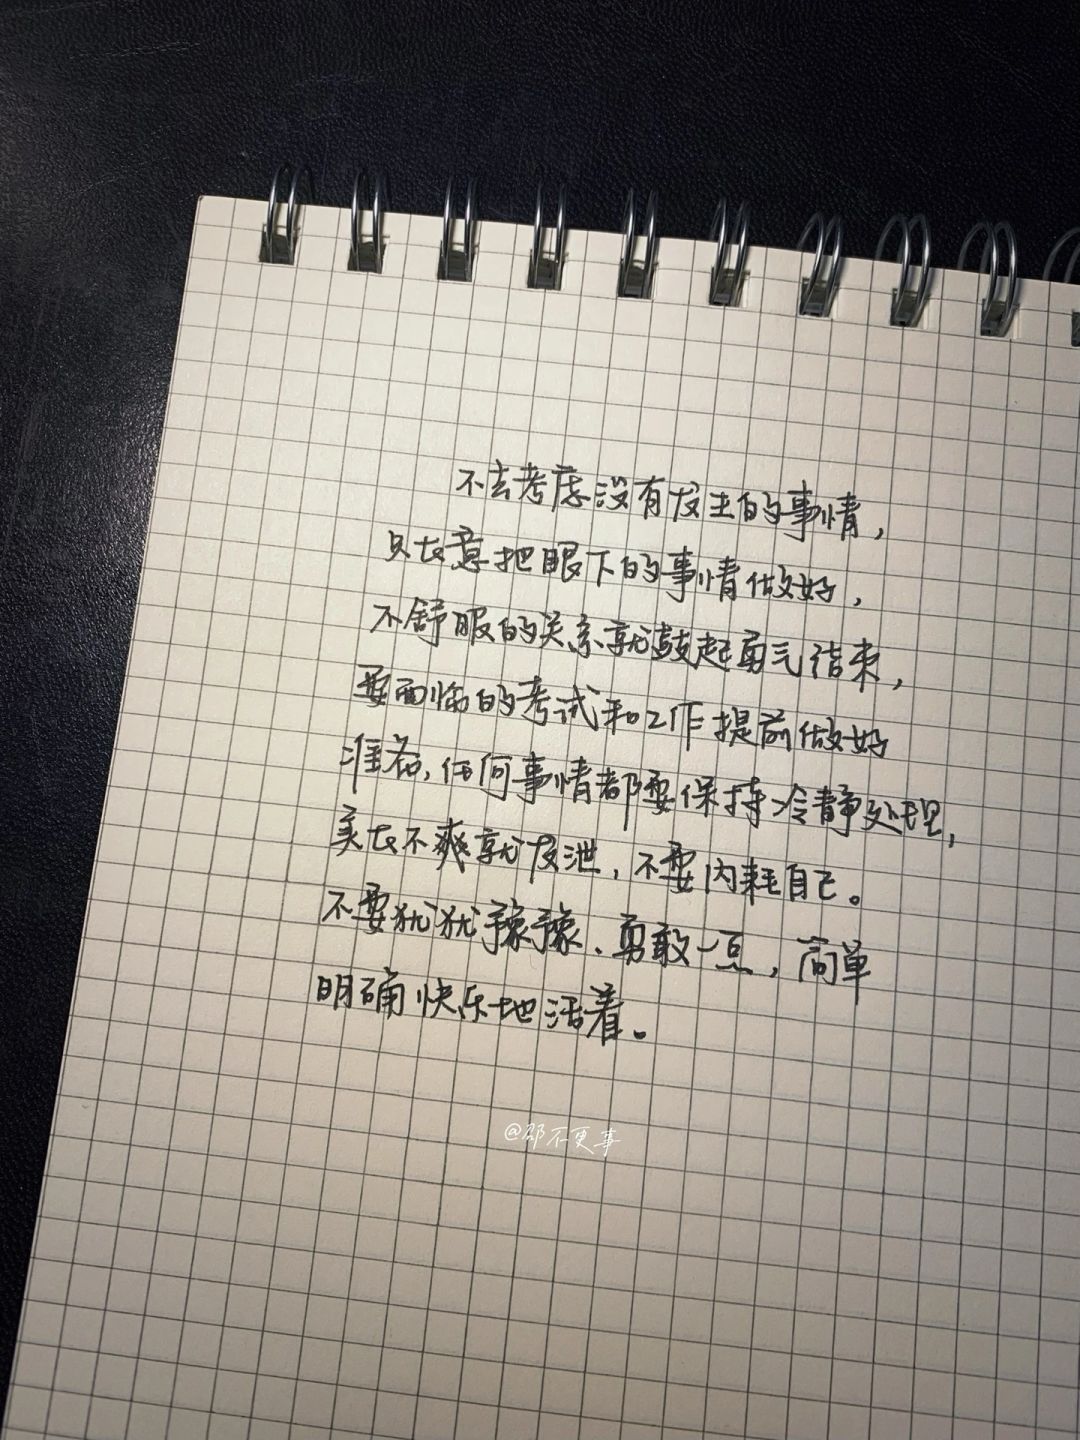 不去考虑没有发生的事情，
只在意把眼下的事情做好，
不舒服的关系就鼓起勇气结束，
要面临的考试和工作提前做好
准备，任何事情都要保持冷静处理，
实在不爽就发泄，不要内耗自己。
不要犹犹豫豫、勇敢一点，简单
明确快乐地活着。
@邵不更事